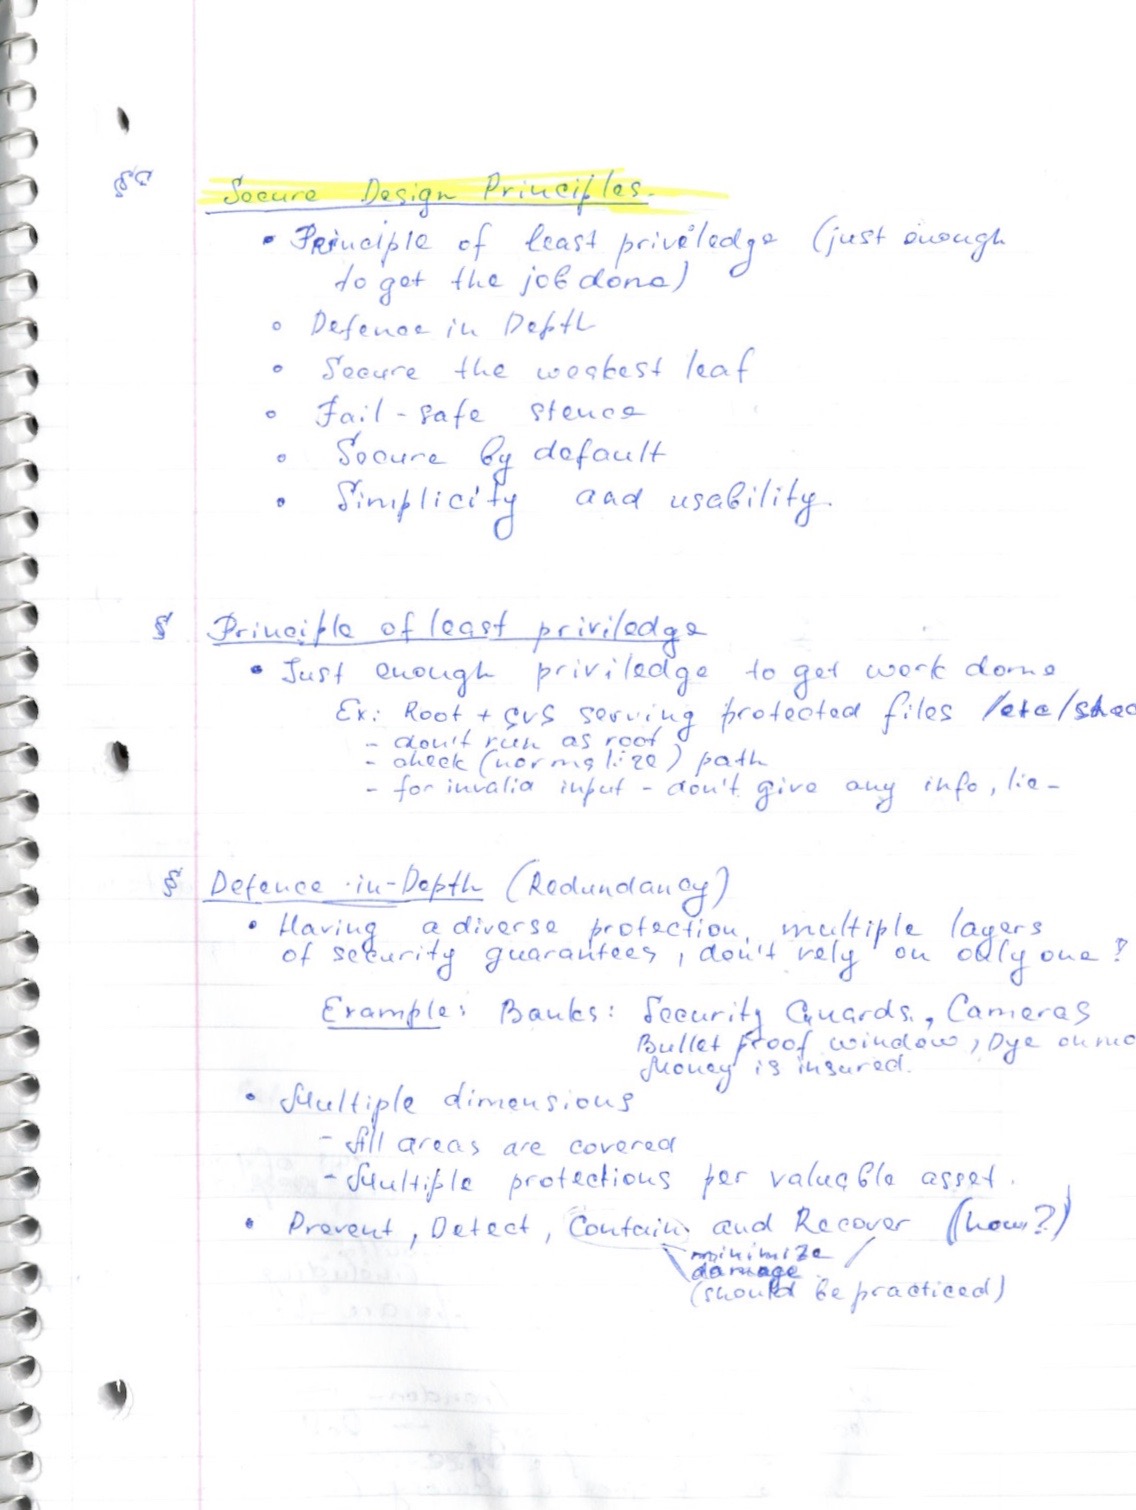 §§ Secure Design Principles.
• Principle of least priveledge (just enough
to get the job done)
◦ Defence in Depth
◦ Secure the weakest leaf
◦ Fail-safe stence
◦ Secure by default
◦ Simplicity and usability.
§ Principle of least priviledge
• Just enough priviledge to get work done
Ex: Root + SWS serving protected files /etc/shad
- don't run as root
- check (normalize) path
- for invalid input - don't give any info, lie-
§ Defence-in-Depth (Redundancy)
• Having a diverse protection, multiple layers
of security guarantees, don't rely on only one!
Example: Banks: Security Guards, Cameras
Bullet proof window, Dye on mo
Money is insured.
• Multiple dimensions
- All areas are covered
- Multiple protections per valuable asset.
• Prevent, Detect, Contain and Recover (how?)
minimize
damage
(should be practiced)